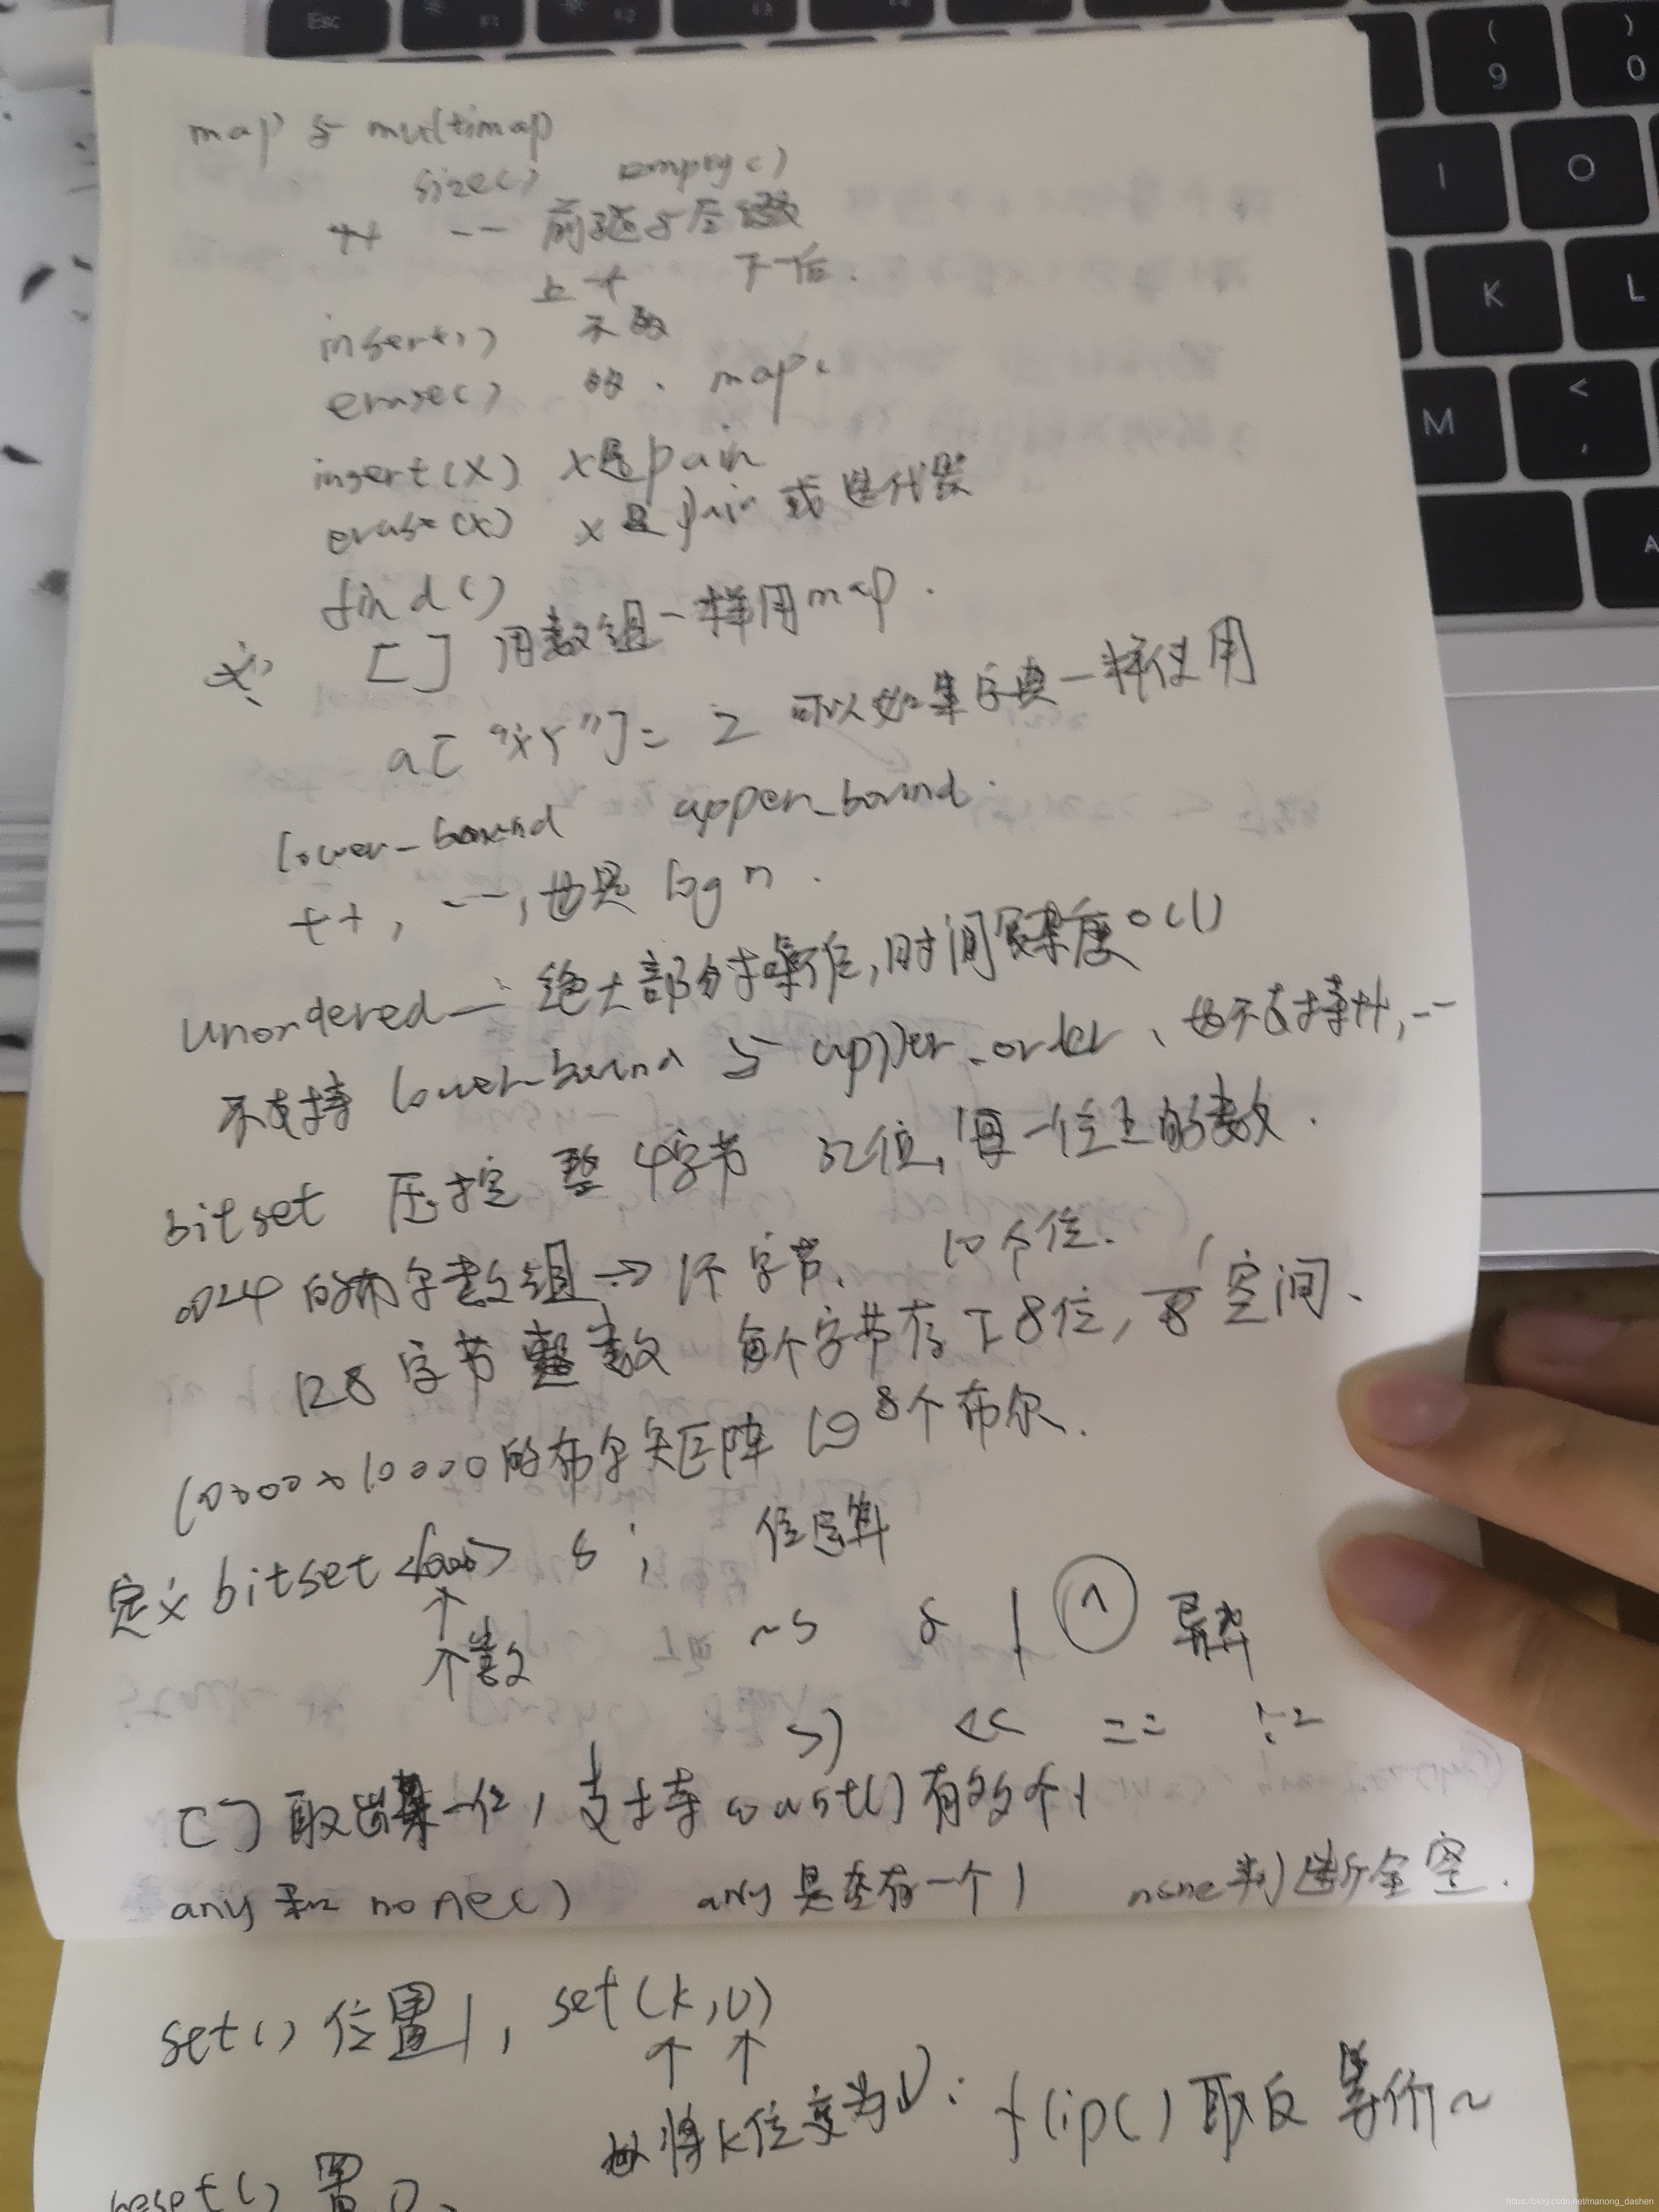 Esc
9
0
I
O
K
L
M
<
,
A
map 与 multimap
size() empty()
++ -- 前驱与后继
上一个 下一个.
insert() 示数
erase() map
insert(X) x是pair
erase(x) x是pair 或迭代器
find()
[] 用数组一样用map.
a["xy"]= 2 可以如集字典一样使用
lower_bound upper_bound.
++, --, 也是 log n.
unordered_: 绝大部分操作, 时间复杂度O(1)
不支持 lower_bound 与 upper_order、也不支持++, --
bitset 压 整 4字节 32位, 每一位上的数.
1024 的布尔数组 → 1千字节. 10个位.
128 字节整数 每个字节存下8位, 1/8 空间.
10000×10000的布尔矩阵 10^8个布尔.
定义 bitset<1000> s; 位运算
个数 ~s & | ^ 异或
>> << == !=
[] 取出某一位, 支持 count() 有多少个1
any 和 none() any 是否有一个1 none判断全空.
set() 位置1, set(k,v)
将k位变为V: flip() 取反 等价~
reset() 置0.
https://blog.csdn.net/manong_dashen